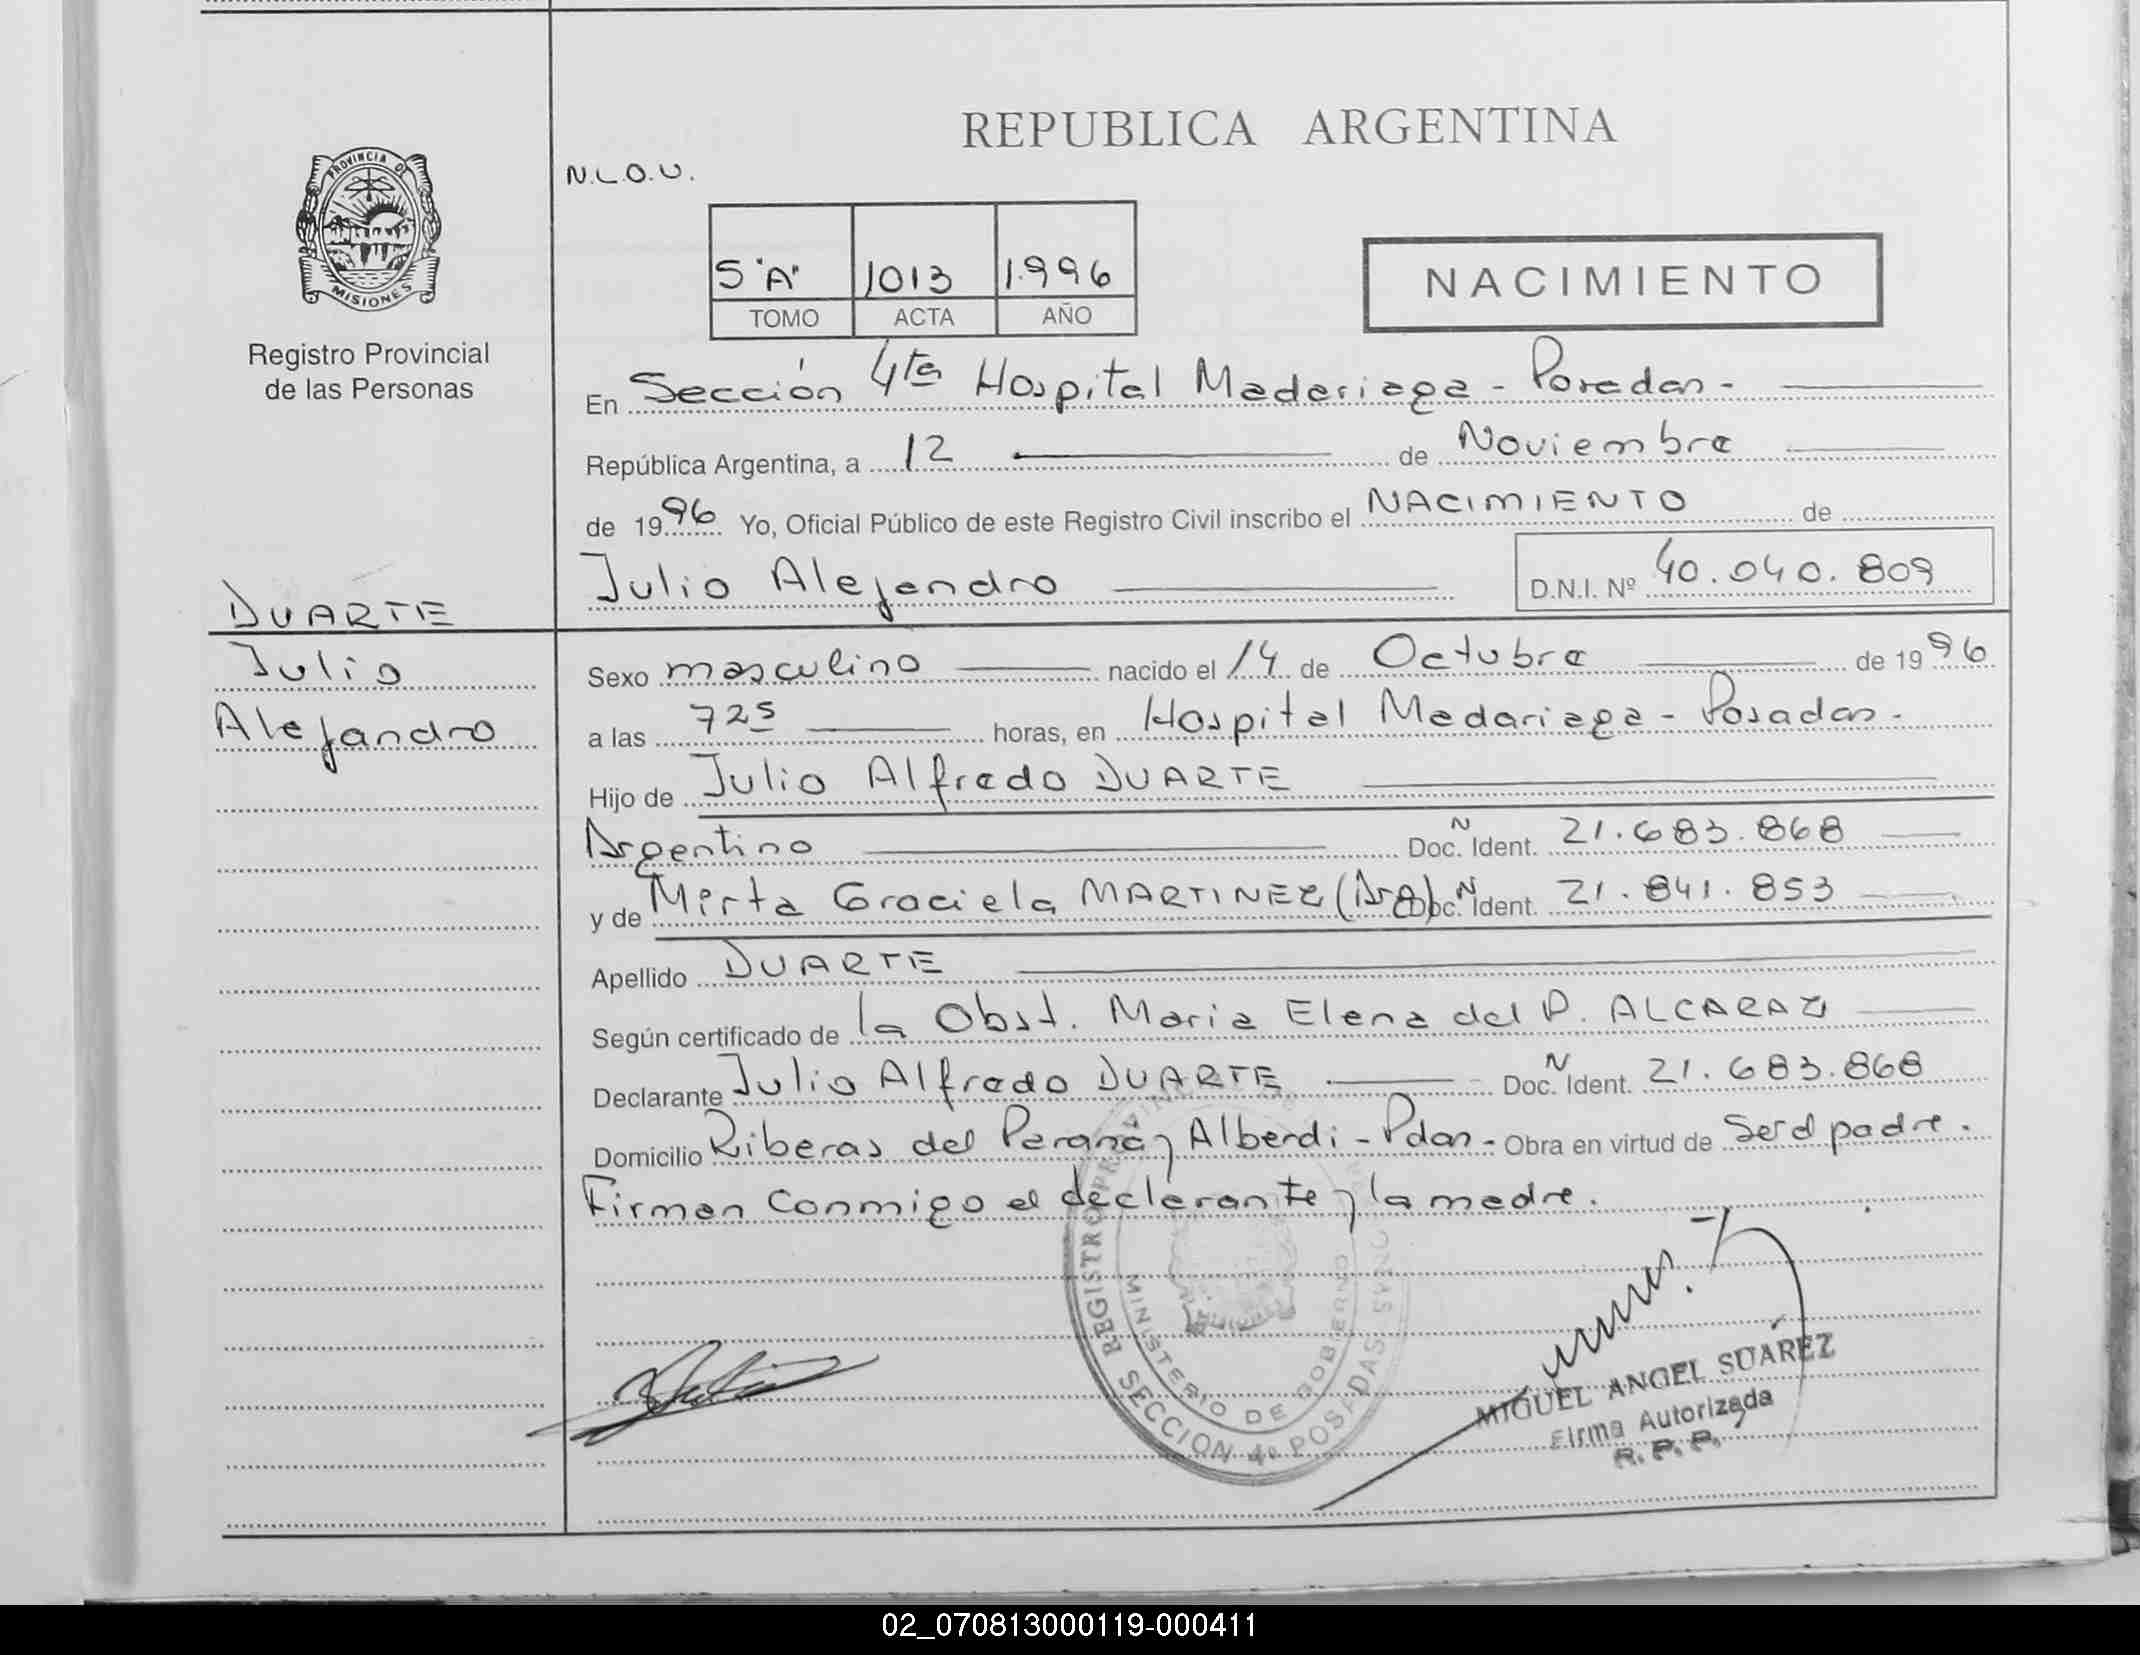 REPUBLICA ARGENTINA
PROVINCIA DE
MISIONES
Registro Provincial
de las Personas
N.L.O.U.
5 "A" 1013 1.996
TOMO ACTA AÑO
NACIMIENTO
En Sección 4ta Hospital Madariaga - Posadas -
República Argentina, a 12 de Noviembre
de 1996 Yo, Oficial Público de este Registro Civil inscribo el NACIMIENTO de
Julio Alejandro D.N.I. Nº 40.040.809
DUARTE
Julio
Alejandro
Sexo masculino nacido el 14 de Octubre de 1996
a las 725 horas, en Hospital Madariaga - Posadas -
Hijo de Julio Alfredo DUARTE
Argentino Doc. N Ident. 21.683.868
y de Mirta Graciela MARTINEZ (Arg) Doc. N Ident. 21.841.853
Apellido DUARTE
Según certificado de la Obst. Maria Elena del P. ALCARAZ
Declarante Julio Alfredo DUARTE Doc. N Ident. 21.683.868
Domicilio Riberas del Paraná y Alberdi - Pdas - Obra en virtud de Ser el padre.
Firman conmigo el declarante y la madre.
REGISTRO
SECCION 4º POSADAS
MINISTERIO DE GOBIERNO
MIGUEL ANGEL SUAREZ
Firma Autorizada
R. P. P.
02_070813000119-000411